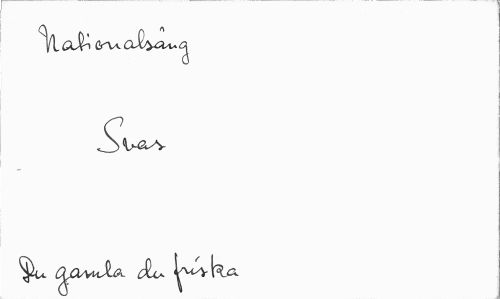 Nationalsång
Svas
Du gamla du friska